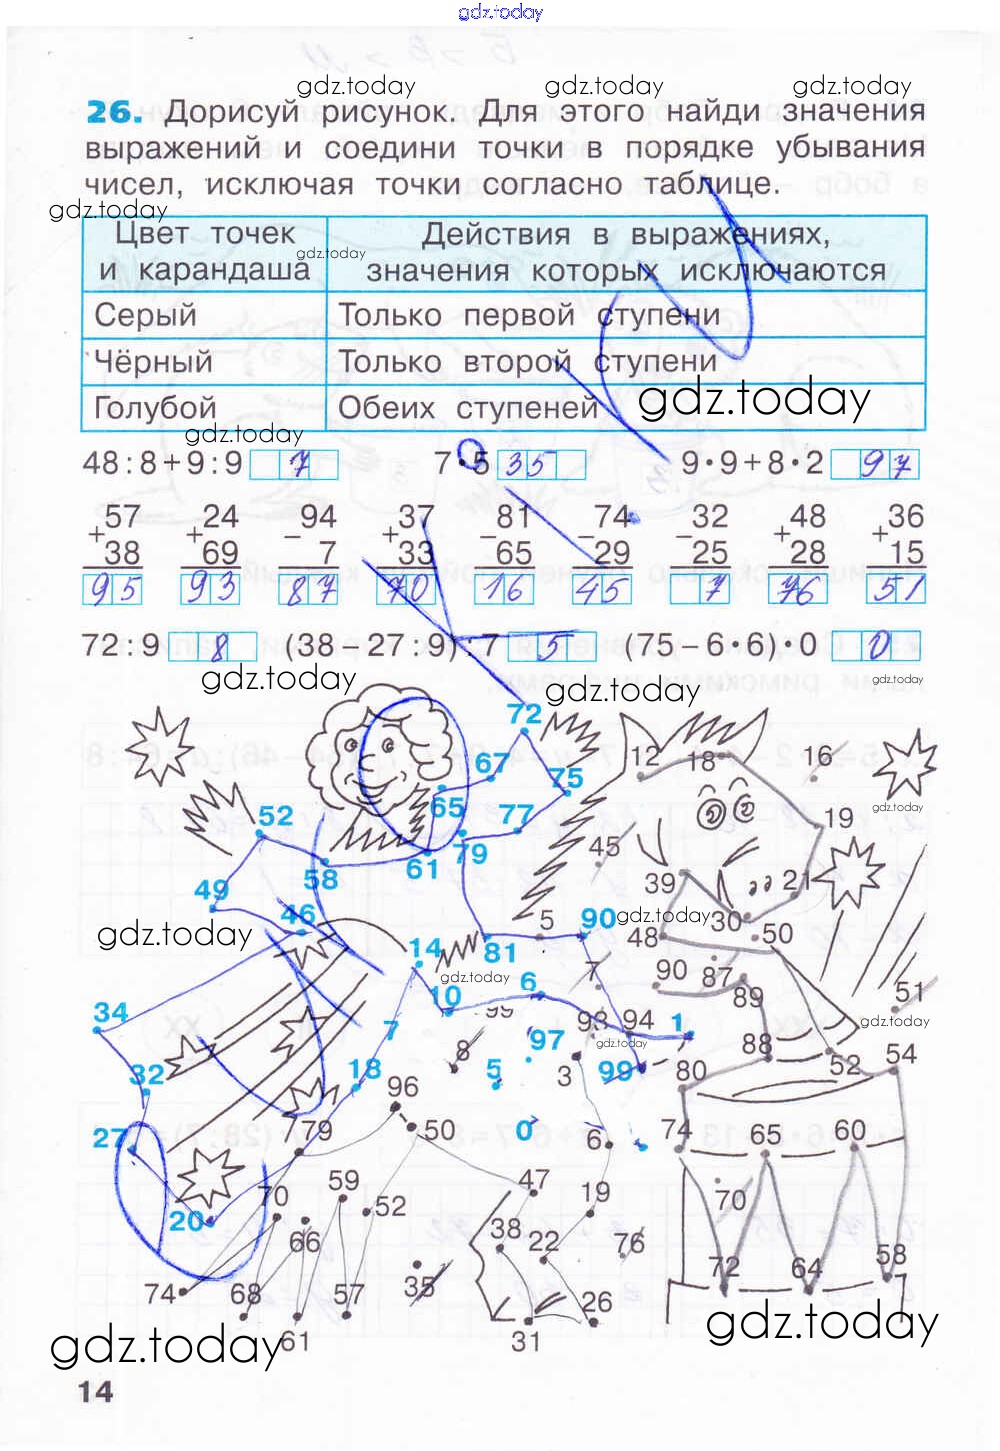 gdz.today
gdz.today gdz.today gdz.today
26. Дорисуй рисунок. Для этого найди значения
выражений и соедини точки в порядке убывания
чисел, исключая точки согласно таблице.
gdz.today
Цвет точек Действия в выражениях,
gdz.today
и карандаша значения которых исключаются
Серый Только первой ступени
Чёрный Только второй ступени
Голубой Обеих ступеней gdz.today
gdz.today
48 : 8 + 9 : 9 7 7 · 5 35 9 · 9 + 8 · 2 97
57 24 94 37 81 74 32 48 36
+ + – + – – – + +
38 69 7 33 65 29 25 28 15
95 93 87 70 16 45 7 76 51
72 : 9 8 (38 – 27 : 9) : 7 5 (75 – 6 · 6) · 0 0
gdz.today gdz.today gdz.today
72
12 18 16
67 75
65 77 gdz.today
52 19
79 45
61
58 39 21
49
46 5 90 gdz.today 30
gdz.today 48 50
14 81
gdz.today 7 90 87
10 6 89 51
34 99
7 93 94 1 gdz.today
97 gdz.today 88
8 52 54
32 18 5 3 99 80
96
27 79 50 0 6 74 65 60
70 59 52 47 19 70
20
66 38 22 76
35 72 64 58
74 68 57 26
gdz.today 61 31 gdz.today
14